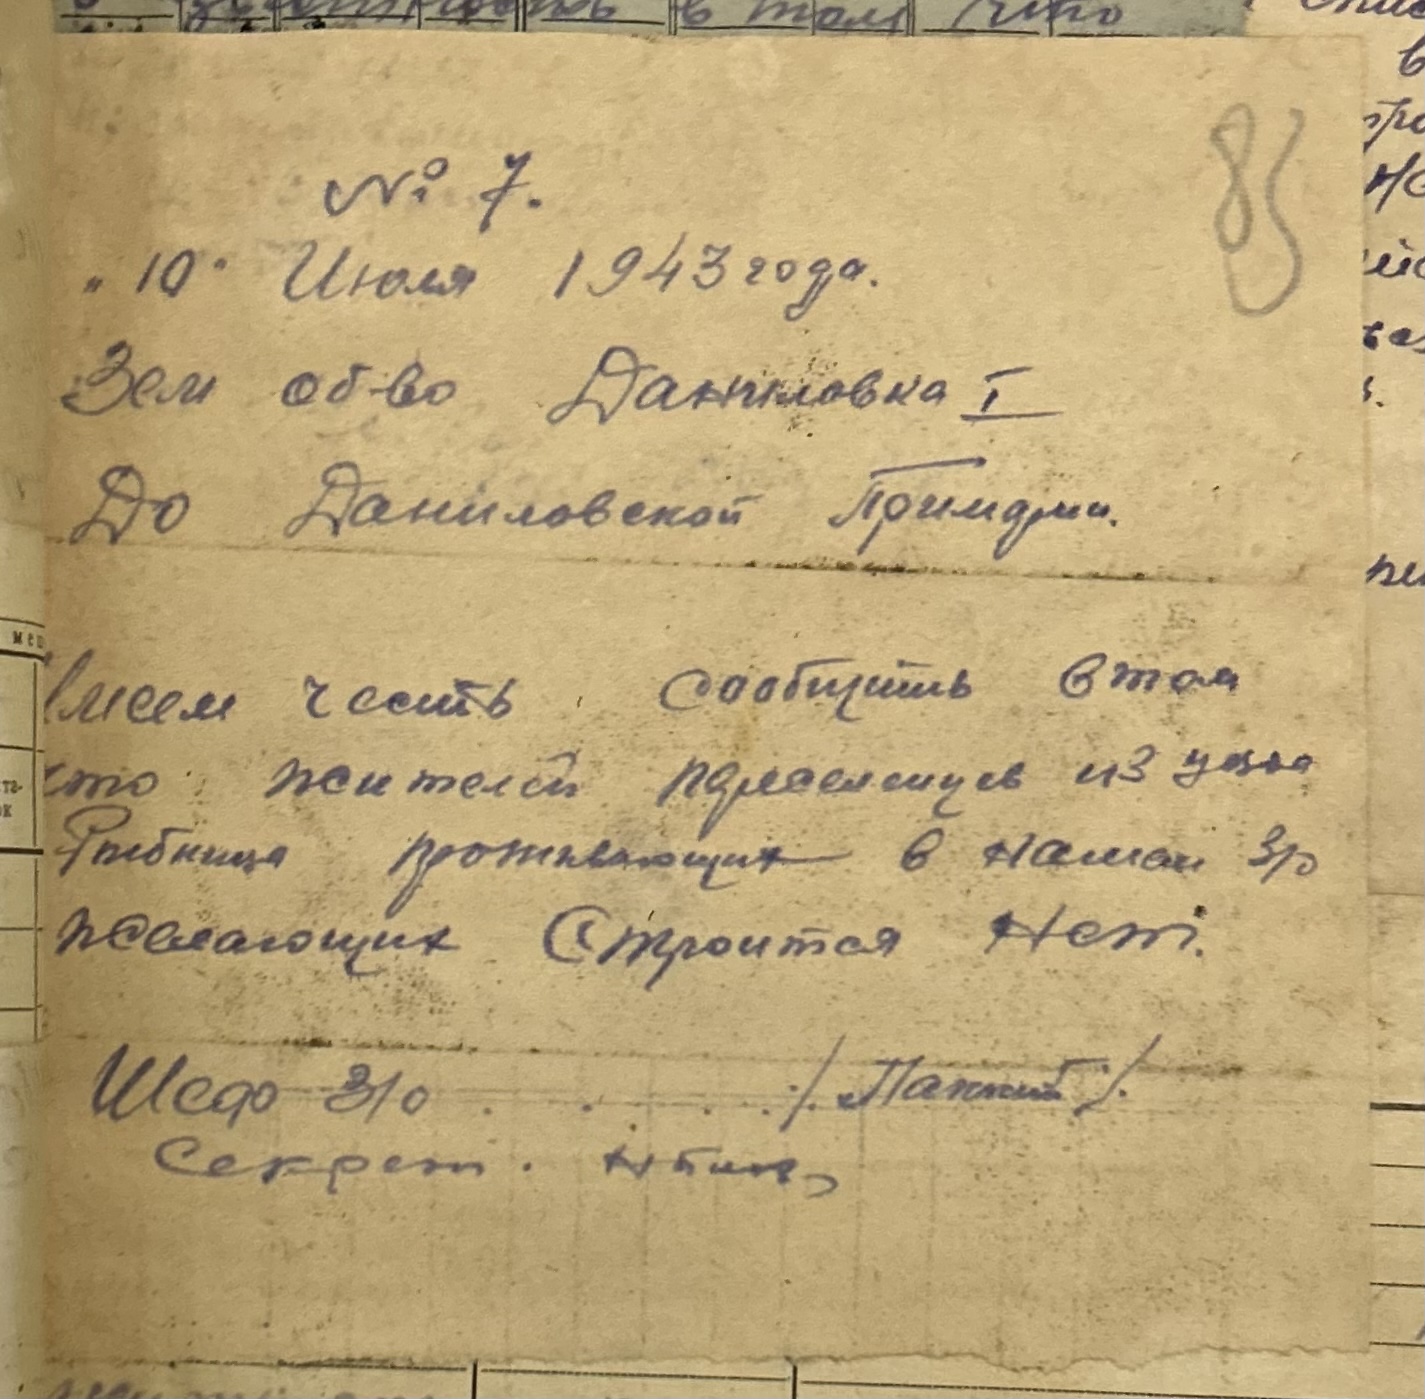 в том что
85
№ 7.
"10" Июля 1943 года.
Зем об-во Даниловка I
До Даниловской Примэрии.
Имеем честь сообщить в том
что жителей переселенцев из
Рыбница проживающих в нашем з/о
желающих строится нет.
Шеф З/о . . . . /. /.
Секрет.